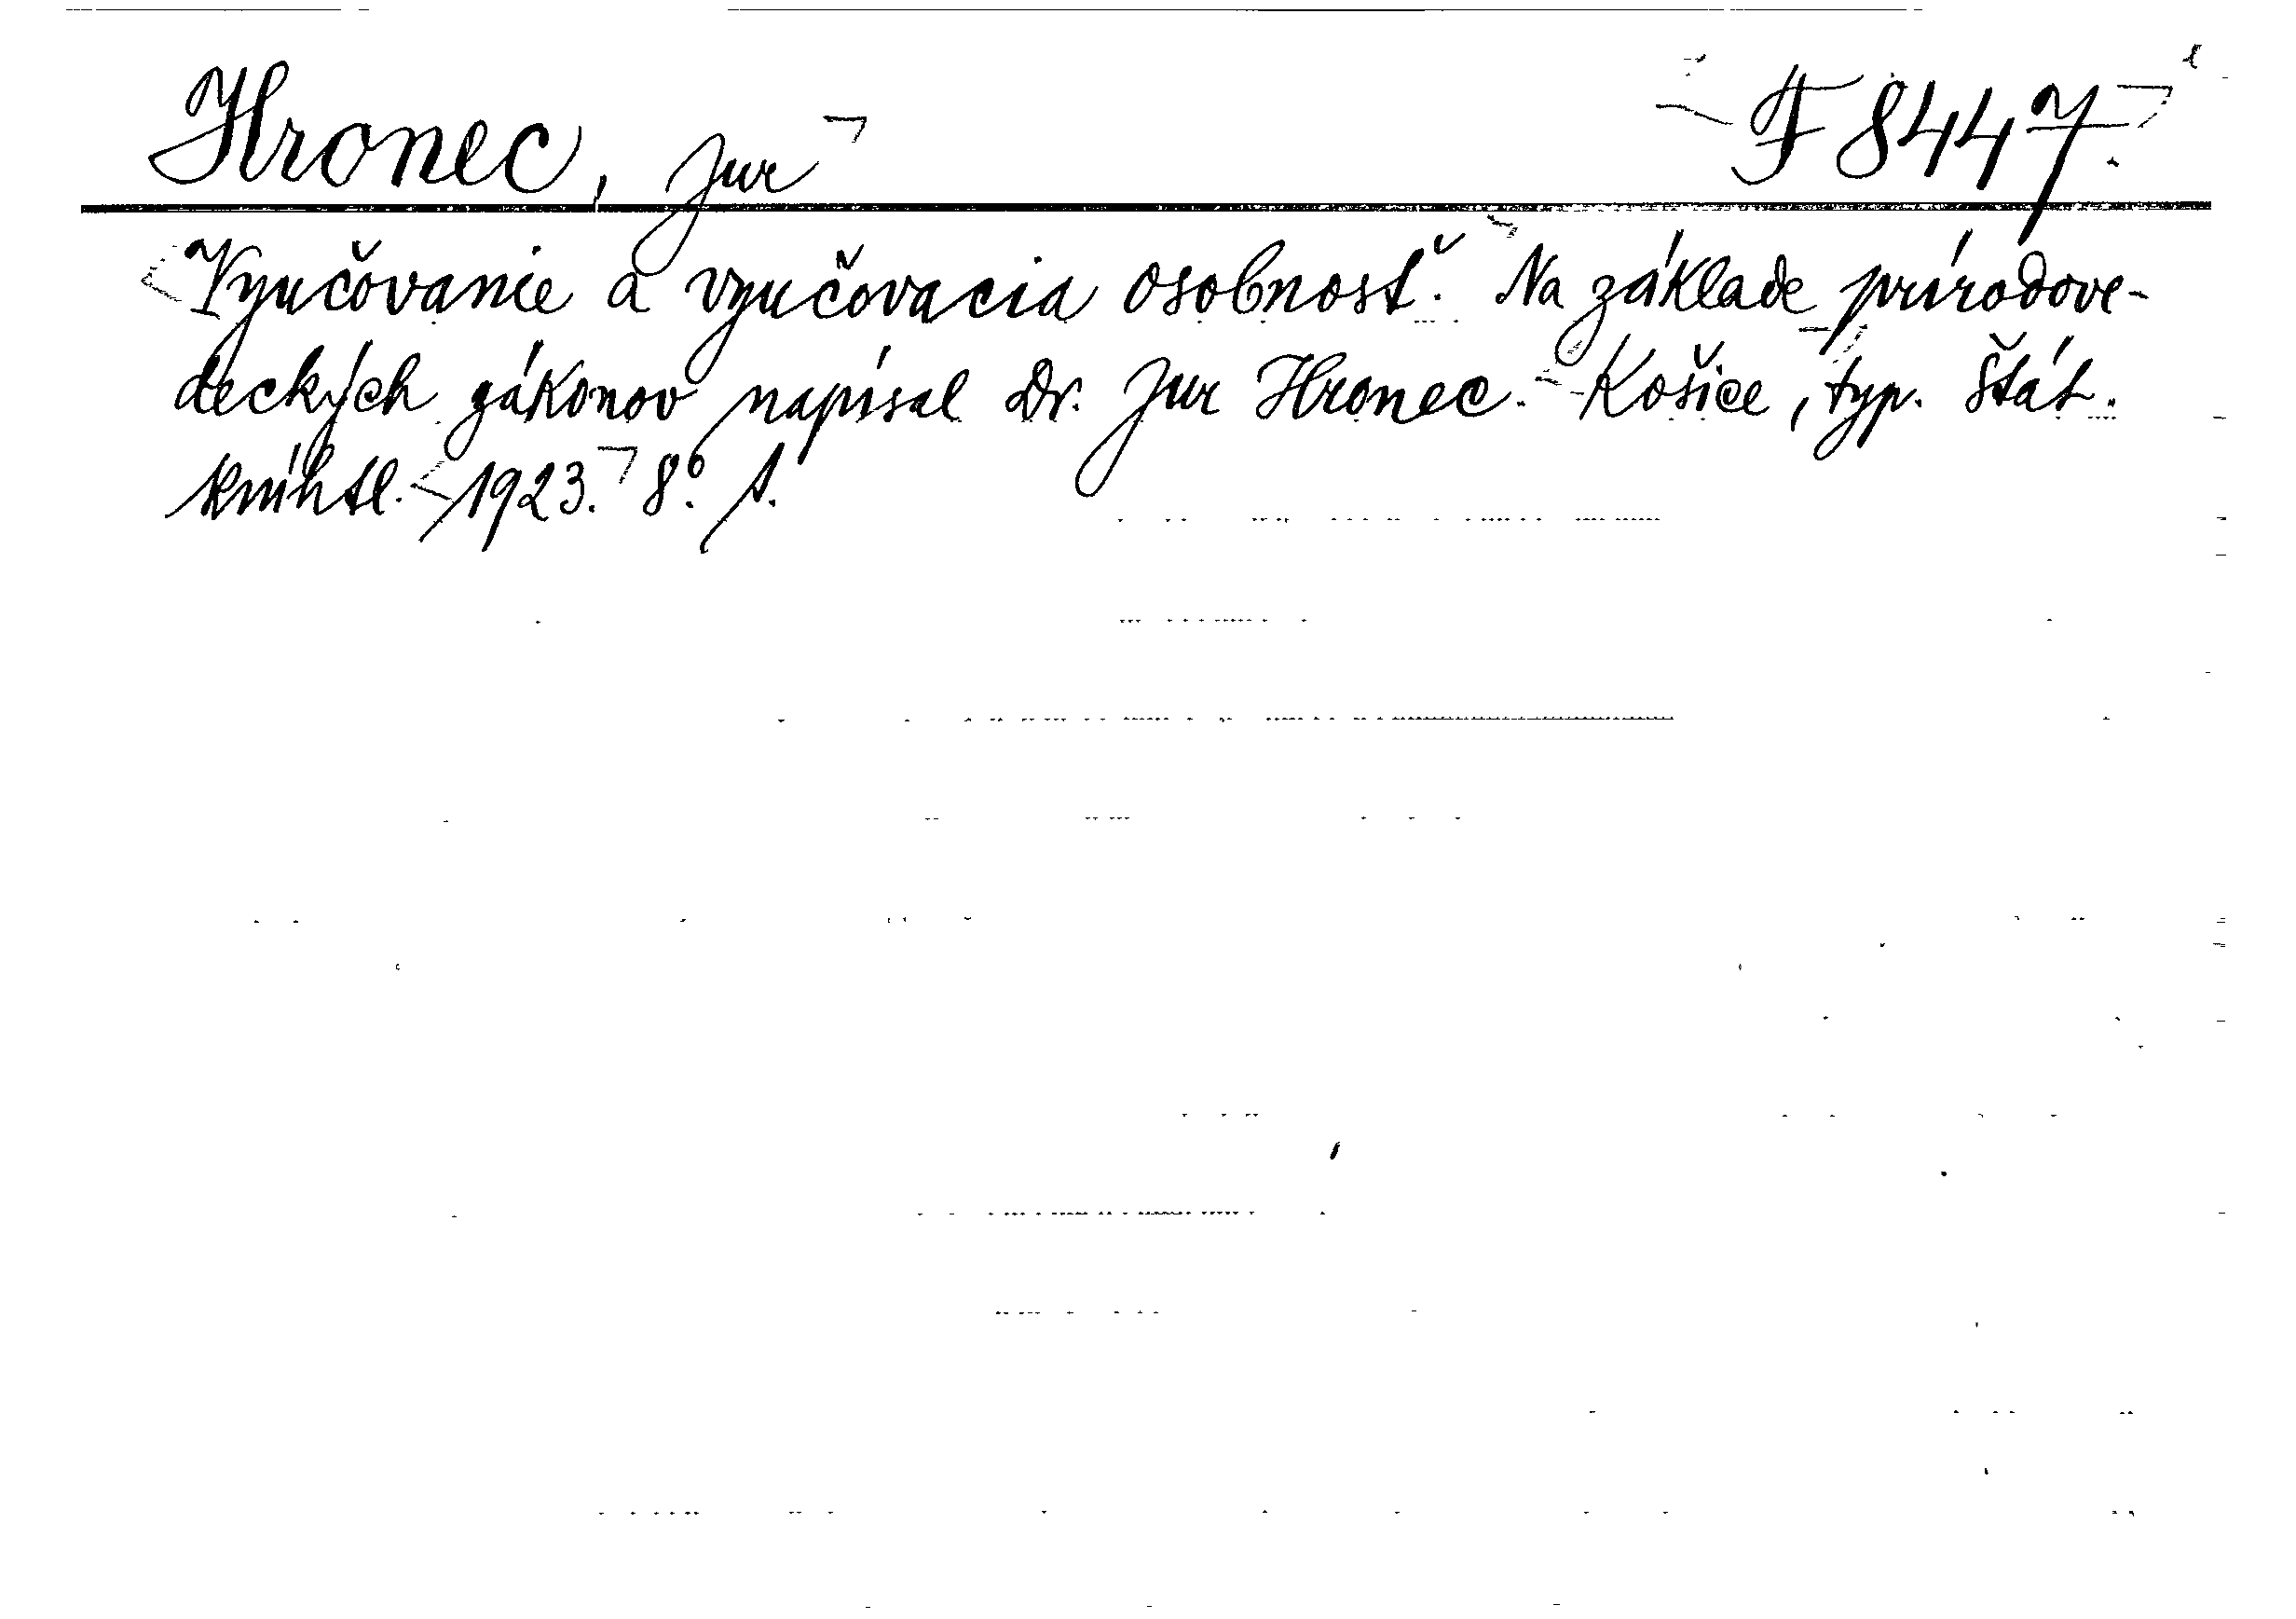 Hronec, Jur F 8447.
Vyučovanie a vyučovacia osobnosť. Na základe prírodove-
deckých zákonov napísal Dr. Jur Hronec. - Košice, typ. štát.
kníhtl. 1923. 8° s.